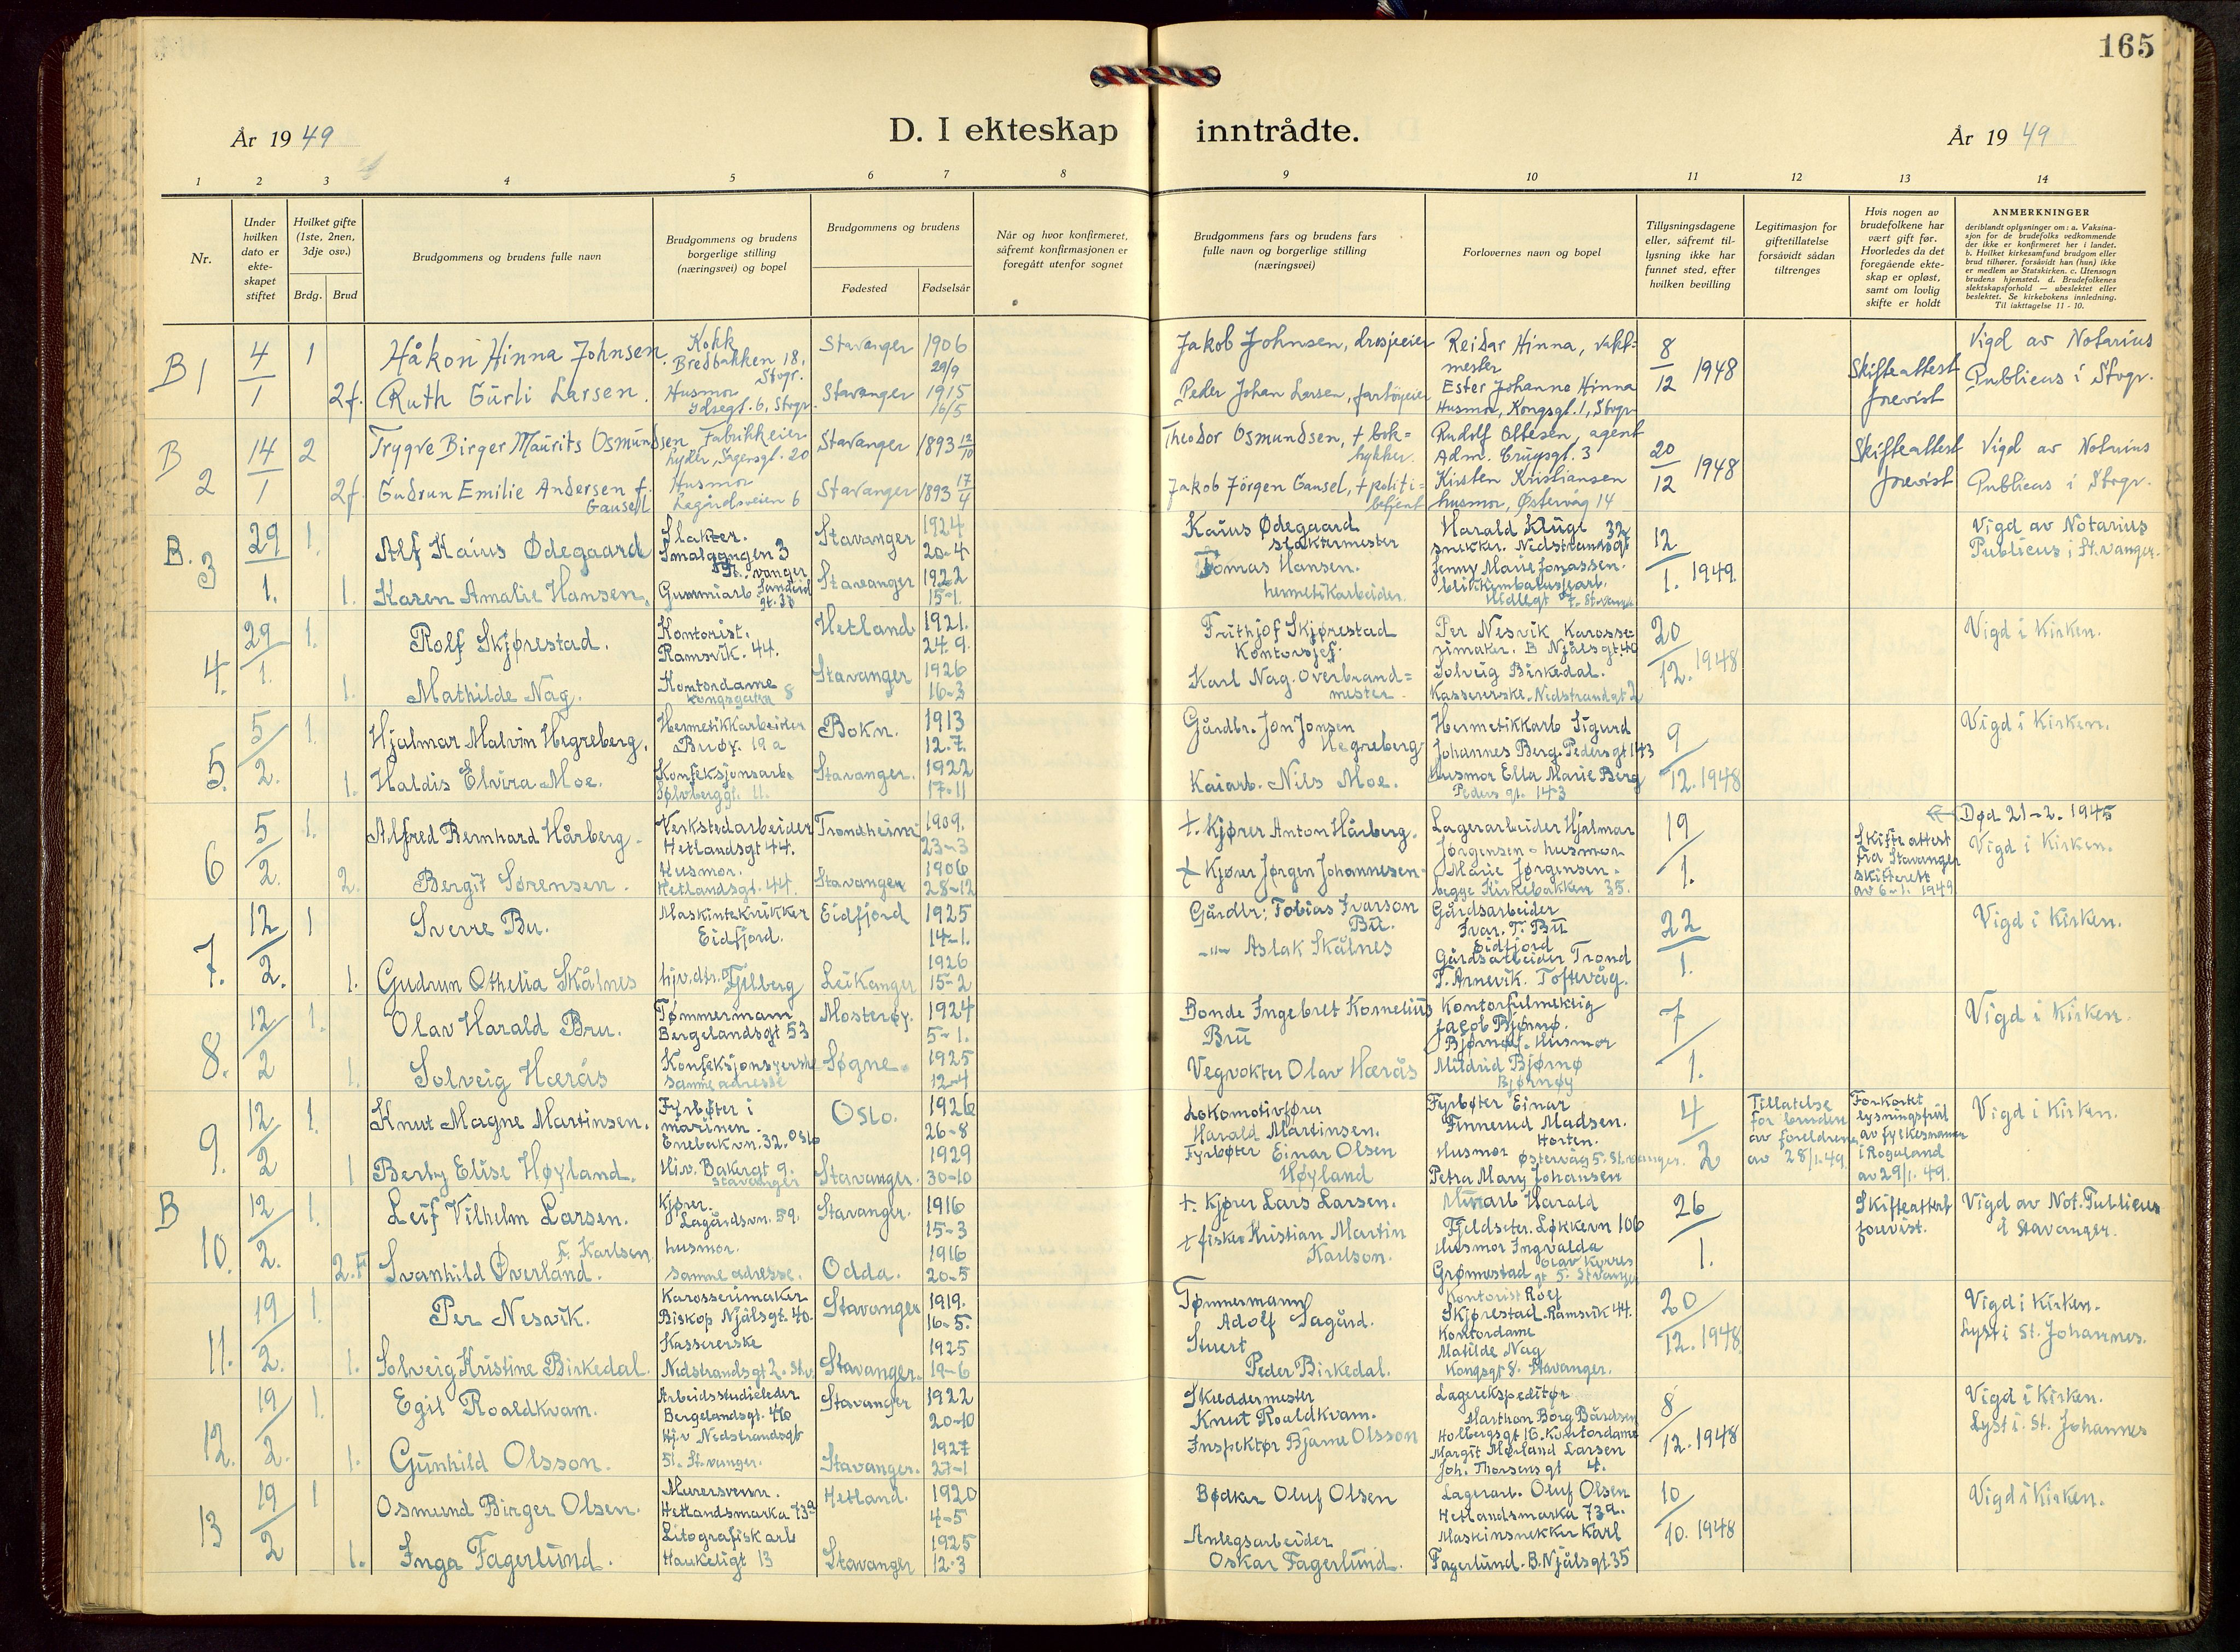 165
År 1949
D. I ekteskap inntrådte.
År 1949
1 2 3 4 5 6 7 8 9 10 11 12 13 14
Nr.
Under hvilken dato er ekte-skapet stiftet
Hvilket gifte (1ste, 2nen, 3dje osv.)
Brdg. Brud
Brudgommens og brudens fulle navn
Brudgommens og brudens borgerlige stilling (næringsvei) og bopel
Brudgommens og brudens
Fødested Fødselsår
Når og hvor konfirmeret, såfremt konfirmasjonen er foregått utenfor sognet
Brudgommens fars og brudens fars fulle navn og borgerlige stilling (næringsvei)
Forlovernes navn og bopel
Tillysningsdagene eller, såfremt til-lysning ikke har funnet sted, efter hvilken bevilling
Legitimasjon for giftetillatelse forsåvidt sådan tiltrenges
Hvis nogen av brudefolkene har vært gift før. Hvorledes da det foregående ekte-skap er opløst, samt om lovlig skifte er holdt
ANMERKNINGER
deriblandt oplysninger om: a. Vaksina-sjon for de brudefolks vedkommende der ikke er konfirmeret her i landet. b. Hvilket kirkesamfund brudgom eller brud tilhører, forsåvidt han (hun) ikke er medlem av Statskirken. c. Utensogn brudens hjemsted. d. Brudefolkenes slektskapsforhold — ubeslektet eller beslektet. Se kirkebokens innledning. Til iakttagelse 11 - 10.
B 1 4/1 1 Håkon Hinna Johnsen. Kokk Bredbakken 18, Stvgr. Stavanger 1906 29/9 Jakob Johnsen, drosjeeier Reidar Hinna, vakt=mester 8/12 1948 Skifteattest forevist Vigd av Notarius Publicus i Stvgr.
2f. Ruth Gürli Larsen. Husmor Stvgr. Stavanger 1915 16/5 Peder Johan Larsen, fartøyeier Ester Johanne Hinna Husmor, Kongsgt. 1, Stvgr
B 2 14/1 2 Trygve Birger Maurits Osmundsen Fabrikkeier Stavanger 1893 12/10 Theodor Osmundsen, + bok=trykker. Rudolf Ottesen, agent Adm. Crugsgt. 3 20/12 1948 Skifteattest forevist Vigd av Notarius Publicus i Stvgr.
2f. Gudrun Emilie Andersen f. Gausel Husmor Lagårdsveien 6 Stavanger 1893 17/4 Jakob Jörgen Gausel, + politi=betjent Kirsten Kristiansen husmor, Østervåg 14
B. 3 29/1. 1. Alf Kaius Ødegaard Slakter. Smalgangen 3 St.vanger Stavanger 1924 20-4 Kaius Ødegaard slaktermester Harald Kluge 32 snekker. Nedstrandsgt 12/1. 1949. Vigd av Notarius Publicus i St.vanger.
1. Karen Amalie Hansen. Gummiarb. Stavanger 1922 15-1. Tomas Hansen. hermetikarbeider. Jenny Marie Jonassen.
4. 29/1. 1. Rolf Skjørestad. Kontorist. Ramsvik. 44. Hetland 1921. 24.9. Frithjof Skjørestad Kontorsjef. Per Nesvik Karosse=rimaker. B Njålsgt 40 20/12. 1948 Vigd i Kirken.
1. Mathilde Nag. Kontordame Kongsgata 8 Stavanger 1926 16-3 Karl Nag. Overbrand=mester. Solveig Birkedal. Kassererske. Nedstrandgt 2
5. 5/2. 1. Hjalmar Malvin Hegreberg. Hermetikkarbeider Buøy. 19 a Bokn. 1913 12.7. Gårdbr. Jon Jonsen Hegreberg Hermetikkarb Sigurd Johannes Berg. Pedersgt 143 9/12. 1948 Vigd i Kirken.
1. Haldis Elvira Moe. Konfeksjonsarb. Sølvberggt. 11. Stavanger. 1922 17-11 Kaiarb. Nils Moe. Husmor Ella Marie Berg Peders gt. 143
6 5/2. 1. Alfred Bernhard Hårberg. Verkstedarbeider Hetlandsgt 44. Trondheim 1909. 23-3 +. Kjører Anton Hårberg. Lagerarbeider Hjalmar Jørgensen - husmor 19/1. Skifteattest fra Stavanger skifterett av 6-1. 1949 Død 21-2. 1945 Vigd i Kirken.
2. Bergit Sørensen. Husmor. Hetlandsgt. 44. Stavanger 1906 28-12 + Kjører Jørgen Johannesen. Marie Jørgensen. begge Kirkebakken 35.
7. 12/2. 1 Sverre Bu. Maskintekniker Eidfjord. Eidfjord 1925 14-1. Gårdbr: Tobias Ivarson Bu. Gårdsarbeider Ivar. T. Bu Eidfjord 22/1. Vigd i Kirken.
1. Gudrun Othelia Skålnes hjv.dtr. Fjelberg Leikanger 1926 15-2 -"- Aslak Skålnes Gårdsarbeider Trond T. Arnevik. Toftevåg.
8. 12/2 1. Olav Harald Bru. Tømmermann Bergelandsgt 53 Mosterøy. 1924 5-1. Bonde Ingebret Kornelius Bru Kontorfulmektig Jacob Bjørnø. Bjørnøy. Husmor 7/1. Vigd i Kirken.
1. Solveig Hærås Konfeksjonsyerske samme adresse Søgne. 1925 12-4 Vegvokter Olav Hærås Mildrid Bjørnø Bjørnøy
9. 12/2 1. Knut Magne Martinsen. Fyrbøter i marinen. Enebakvn. 32. Oslo Oslo. 1926 26-8 Lokomotivfører Harald Martinsen. Fyrbøter Einar Finnerud Madsen. Horten. 4/2 Tillatelse for bruden av foreldrene av 28/1. 49. Forkortet lysningsfrist av fylkesmannen i Rogaland av 29/1. 49. Vigd i Kirken.
1 Berly Elise Høyland. Hjv. Bakergt 9. Stavanger Stavanger. 1929 30-10 Fyrbøter Einar Olsen Høyland Husmor Østervåg 5. St.vanger. Petra Mary Johansen
B 10. 12/2. 1. Leif Vilhelm Larsen. Kjører. Lagårdsvn. 59. Stavanger. 1916 15-3 +. Kjører Lars Larsen. Murarb Harald Fjeldseter. Løkkevn 106 26/1. Skifteattest forevist. Vigd av Not. Publicus i Stavanger.
2. F Svanhild Øverland. f. Karlsen husmor. samme adresse. Odda. 1916 20-5 + fisker Kristian Martin Karlson. Husmor Ingvalda Grønnestad Olav Kyrres gt 5. Stvanger
11. 19/2. 1. Per Nesvik. Karosserimaker Biskop Njålsgt. 40. Stavanger 1919. 16-5. Tømmermann Adolf Sagård. Kontorist Rolf Skjørestad. Ramsvik 44. 20/12. 1948 Vigd i Kirken. Lyst i St. Johannes.
1. Solveig Kristine Birkedal. Kassererske Nedstrandsgt 2. Stv. Stavanger. 1925 19-6 Stuert Peder Birkedal. Kontordame Matilde Nag Kongsgt 8. Stavanger.
12. 19/2. 1. Egil Roaldkvam. Arbeidsstudieleder Bergelandsgt. Stavanger 1922 20-10 Skreddermester Knut Roaldkvam. Lagerekspeditør Marthon Borg Bårdsen Holbergsgt 16. Kontordame 8/12. 1948 Vigd i Kirken. Lyst i. St. Johannes
1. Gunhild Olsson. Hj.v Nedstrandsgt 51. St.vanger. Stavanger. 1927 27-1 Inspektør Bjarne Olsson Margit Mørland Larsen Joh. Thorsens gt 4.
13 19/2 1 Osmund Birger Olsen. Murersvenn. Hetlandsmarka 73a Hetland. 1920 4-5 Bødker Oluf Olsen Lagerarb. Oluf Olsen Hetlandsmarka 73a. 10/10. 1948 Vigd i Kirken.
1. Inga Fagerlund. Litografisk arb Haukeligt 13 Stavanger 1925 12-3 Anlegsarbeider Oskar Fagerlund. Maskinsnekker Karl Fagerlund. B. Njålsgt. 35